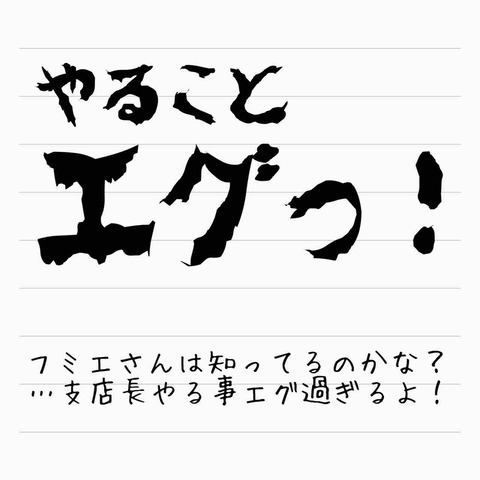 やること
エグっ！
フミエさんは知ってるのかな？
…支店長やる事エグ過ぎるよ！